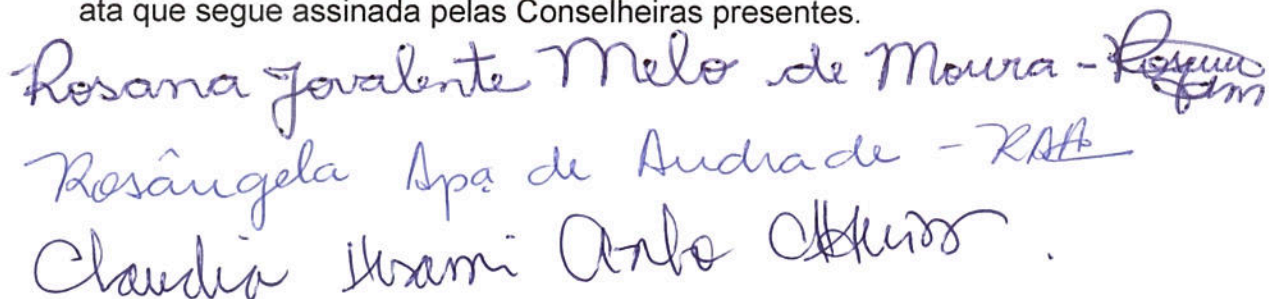 ata que segue assinada pelas Conselheiras presentes.
Rosana Jovalente Melo de Moura - Rosana
Rosângela Apª de Andrade - RAA
Claudia